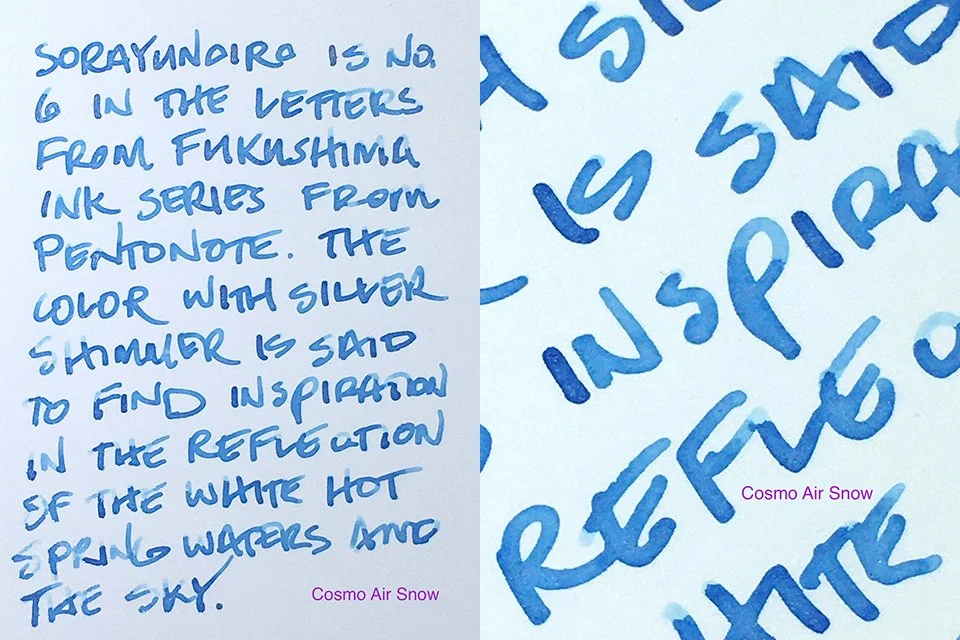 SORAYUNOIRO IS NO.
6 IN THE LETTERS
FROM FUKUSHIMA
INK SERIES FROM
PENTONOTE. THE
COLOR WITH SILVER
SHIMMER IS SAID
TO FIND INSPIRATION
IN THE REFLECTION
OF THE WHITE HOT
SPRING WATERS AND
THE SKY.
Cosmo Air Snow
H SIL
IS SAID
INSPIRA
REFLEC
Cosmo Air Snow
WHITE